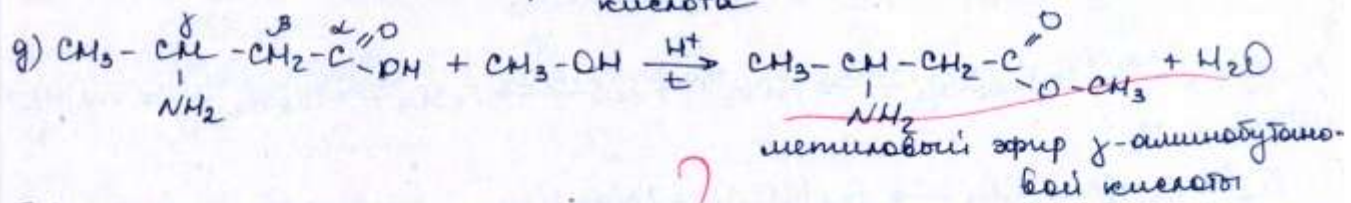 кислота
γ β α
д) CH₃ - CH - CH₂ - C =O -OH + CH₃ - OH H⁺ → t CH₃ - CH - CH₂ - C =O -O - CH₃ + H₂O
NH₂ NH₂
метиловый эфир γ-аминобутано-
вой кислоты
?